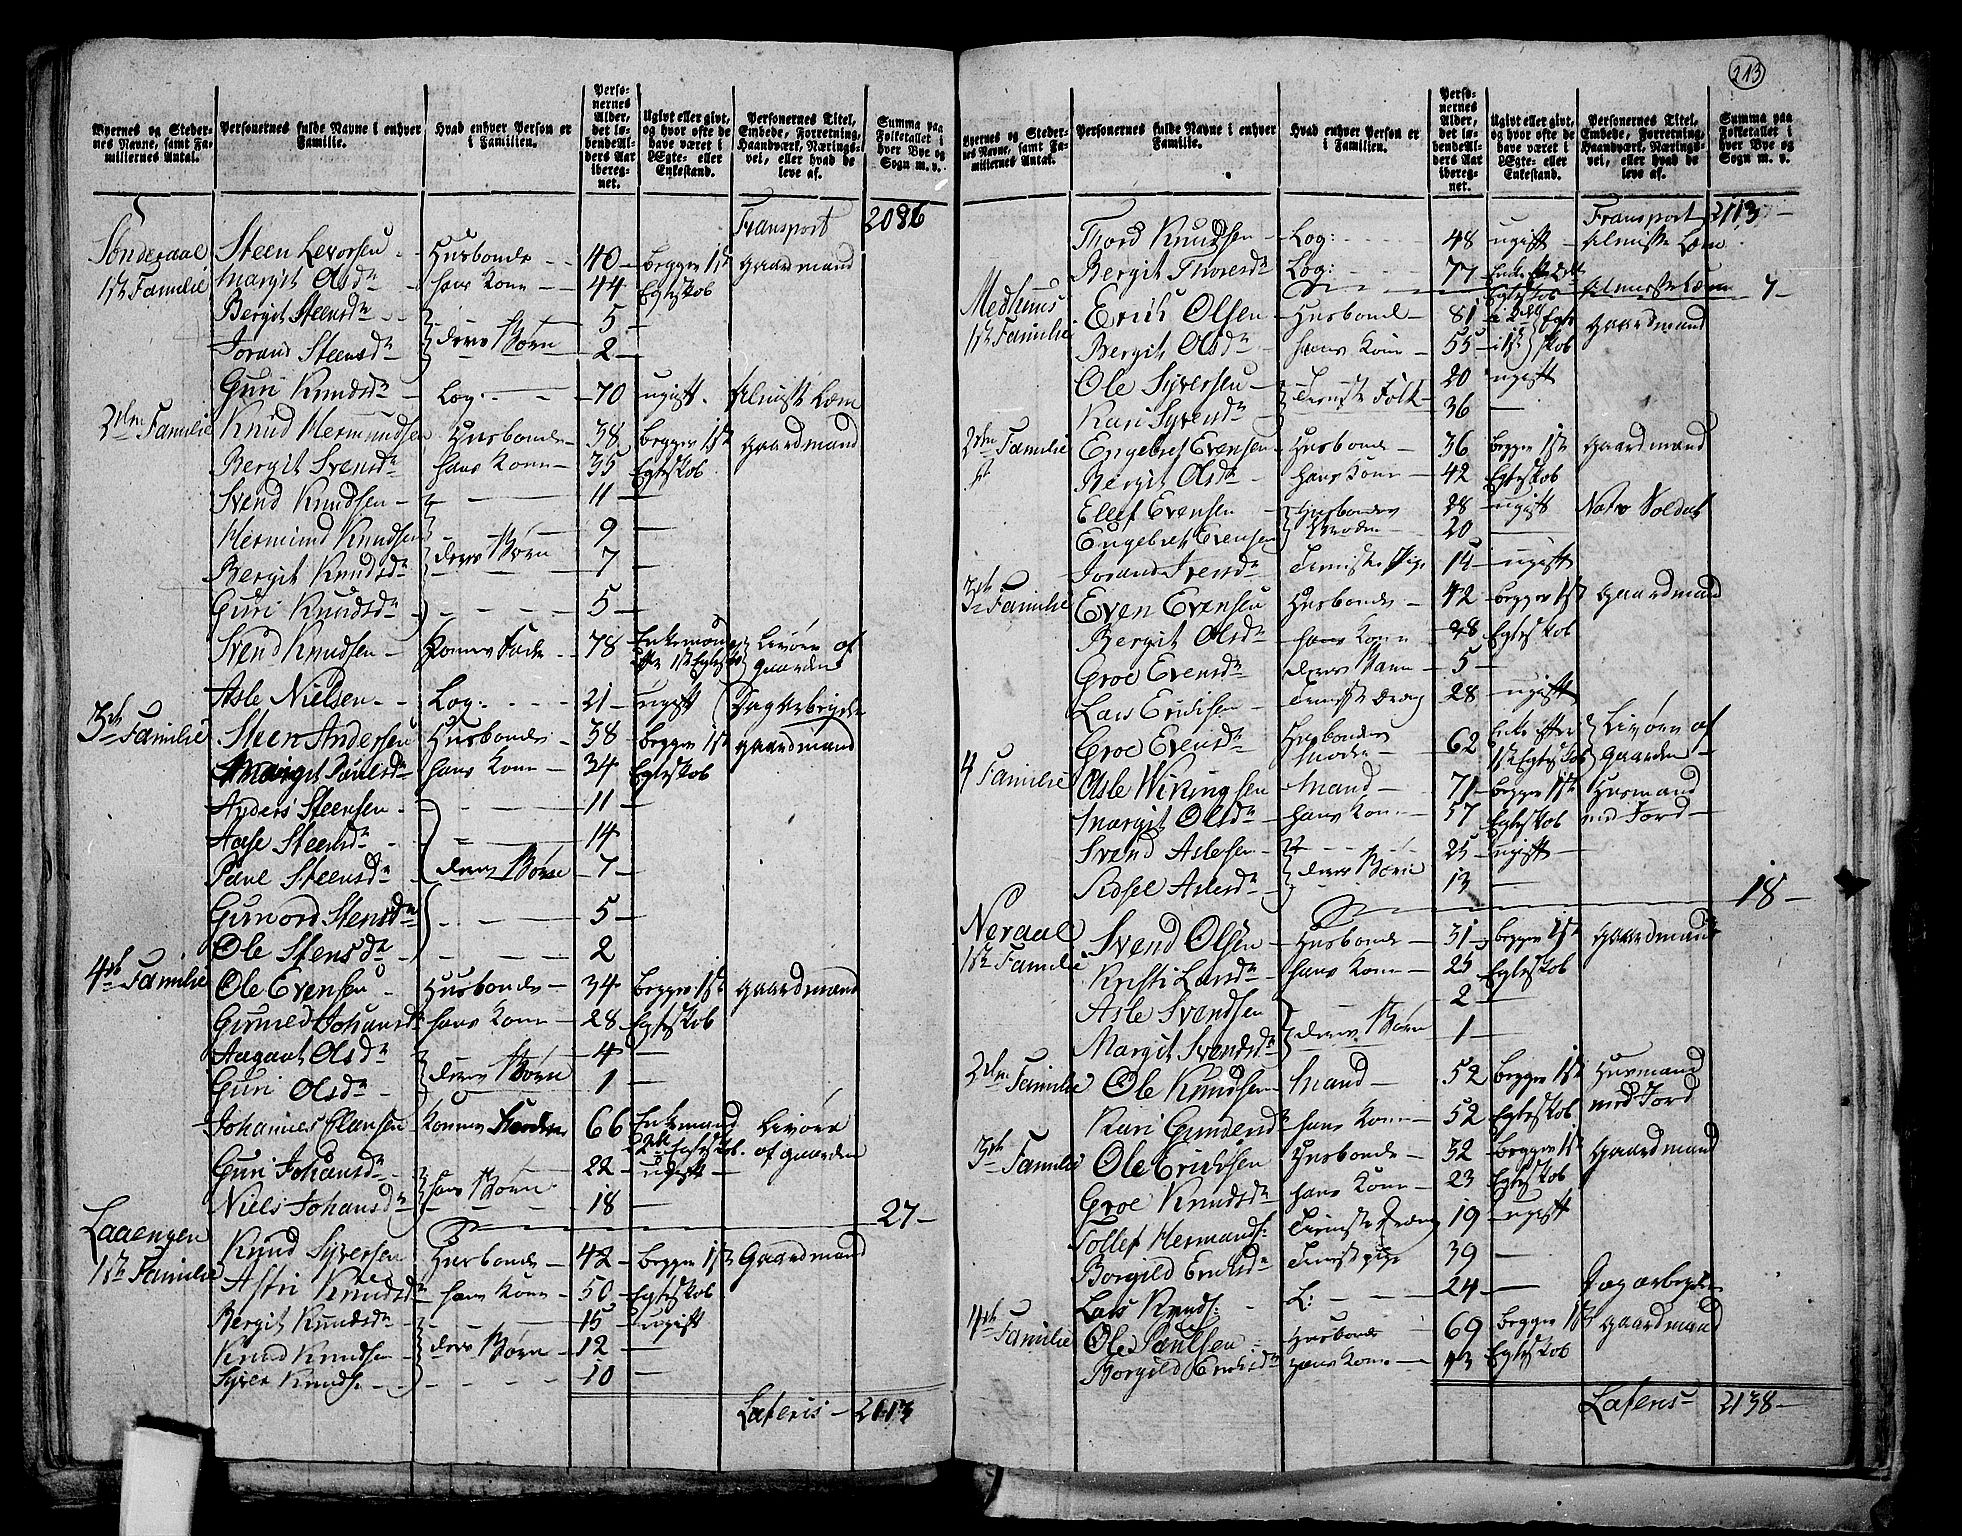 213
Byernes og Steder-
nes Navne, samt Fa-
milliernes Antal.
Personernes fulde Navne i enhver
Familie.
Hvad enhver Person er
i Familien.
Perso-
nernes
Alder,
det lø-
bende Al-
ders Aar
iberegnet.
Ugivt eller givt,
og hvor ofte de
have været i
Egte- eller
Enkestand.
Personernes Titel,
Embede, Forretning,
Haandværk, Nærings-
vei, eller hvad de
leve af.
Summa paa
Folketallet i
hver Bye og
Sogn m. v.
Transport 2086
Søndegaal Steen Levorsen Husbonde 40 begge 1ste Gaardmand
1ste Familie Margit Olsdr hans Kone 44 Egteskob
Bergit Steensdr 5
Jorand Steensdr deres Børn 2
Guri Knudsdr Log: 70 ugift Almisse Lem
2den Familie Knud Hermundsen Husbonde 38 begge 1ste Gaardmand
Bergit Svensdr hans Kone 35 Egteskob
Svend Knudsen 11
Hermund Knudsen 9
Bergit Knudsdr deres Børn 7
Guri Knudsdr 5
Svend Knudsen Konens Fader 78 Enkemand Livøre af
efter 1ste Egtesk Gaarden
Asle Nielsen Log: 21 ugift Dagarbeyder
3die Familie Steen Andersen Husbonde 38 begge 1ste Gaardmand
Margit Paulsdr hans Kone 34 Egteskob
Anders Steensen 11
Aase Steensdr 14
Paul Steensdr deres Børn 7
Gunord Stensdr 5
Ole Stensdr 2
4de Familie Ole Evensen Husbonde 34 Begge 1ste Gaardmand
Gunild Johansdr hans Kone 28 Egteskob
Aagaat Olsdr 4
Guri Olsdr deres Børn 1
Johannes Clausen Konens Fader 66 Enkemand Livøre
2den Egteskob af gaarden
Guri Johansdr 22 ugift
Niels Johansdr hans Børn 18
27
Laaengen Knud Syversen Husbonde 42 begge 1ste Gaardmand
1ste Familie Astri Knudsdr hans Kone 50 Egteskob
Bergit Knudsdr 15 ugift
Knud Knudsen deres Børn 12
Syver Knuds 10
Lateris 2113
Byernes og Steder-
nes Navne, samt Fa-
milliernes Antal.
Personernes fulde Navne i enhver
Familie.
Hvad enhver Person er
i Familien.
Perso-
nernes
Alder,
det lø-
bende Al-
ders Aar
iberegnet.
Ugivt eller givt,
og hvor ofte de
have været i
Egte- eller
Enkestand.
Personernes Titel,
Embede, Forretning,
Haandværk, Nærings-
vei, eller hvad de
leve af.
Summa paa
Folketallet i
hver Bye og
Sogn m. v.
Transport 2113
Thord Knudsen Log: 48 ugift Almisse Lem
Bergit Thoresdr Log: 77 Enke
Egteskob Almisse Lem 7
Medhuus Erich Olsen Husbonde 81 i 2det Egte Gaardmand
1ste Familie Bergit Olsdr hans Kone 55 i 1ste skob
Ole Syversen 20 ugift
Kari Syversdr Tieneste Folk 36
2den Familie Engebret Evensen Husbonde 36 begge 1ste Gaardmand
Bergit Olsdr hans Kone 42 Egteskob
Ellef Evensen Husbondes 28 ugift Nat: Soldat
Engebret Evensen Brødre 20
Jorand Ivensdr Tieneste Pige 15 ugift
3die Familie Even Evensen Husbonde 42 begge 1ste Gaardmand
Bergit Olsdr hans Kone 28 Egteskob
Groe Evensdr deres Barn 5
Lars Erichsen Tieneste Dreng 28 ugift
Groe Evensdr Husbondes 62 Enke efter Livøre af
Moder 1ste Egteskob Gaarden
4 Familie Asle Wikingsen Mand 71 begge 1ste Husmand
Margit Olsdr hans Kone 57 Egteskob med Jord
Svend Aslesen 25 ugift
Sidsel Aslesdr deres Børn 13
18
Neraal Svend Olsen Husbonde 31 begge 1ste Gaardmand
1ste Familie Kristi Larsdr hans Kone 25 Egteskob
Asle Svendsen 2
Margit Svendsdr deres Børn 1
2den Familie Ole Knudsen Mand 52 begge 1ste Husmand
Kari Gundersdr hans Kone 52 Egteskob med Jord
3die Familie Ole Erichsen Husbonde 32 Begge 1ste Gaardmand
Groe Knudsdr hans Kone 23 Egteskob
Tollef Hermands: Tieneste Dreng 19 ugift
Borgild Erichsdr Tieneste pige 39
Lars Knuds: L: 24 Dagarbeyder
4de Familie Ole Paulsen Husbonde 69 Begge 1ste Gaardmand
Borgild Erichsdr hans Kone 43 Egteskob
Lateris 2138